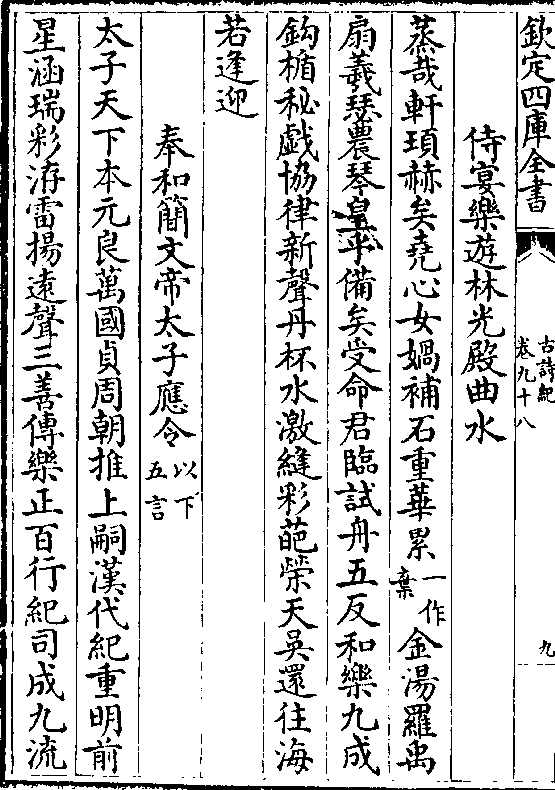 欽定四庫全書
古詩紀
卷九十八
九
侍宴樂遊林光殿曲水
蒸哉軒頊赫矣堯心女媧補石重華累一作棄金湯羅禹
扇羲瑟農琴皇乎備矣受命君臨試舟五反和樂九成
鈎楯秘戲協律新聲丹杯水激縫彩葩榮天吳還往海
若逢迎
奉和簡文帝太子應令以下五言
太子天下本元良萬國貞周朝推上嗣漢代紀重明前
星涵瑞彩洊雷揚遠聲三善傳樂正百行紀司成九流